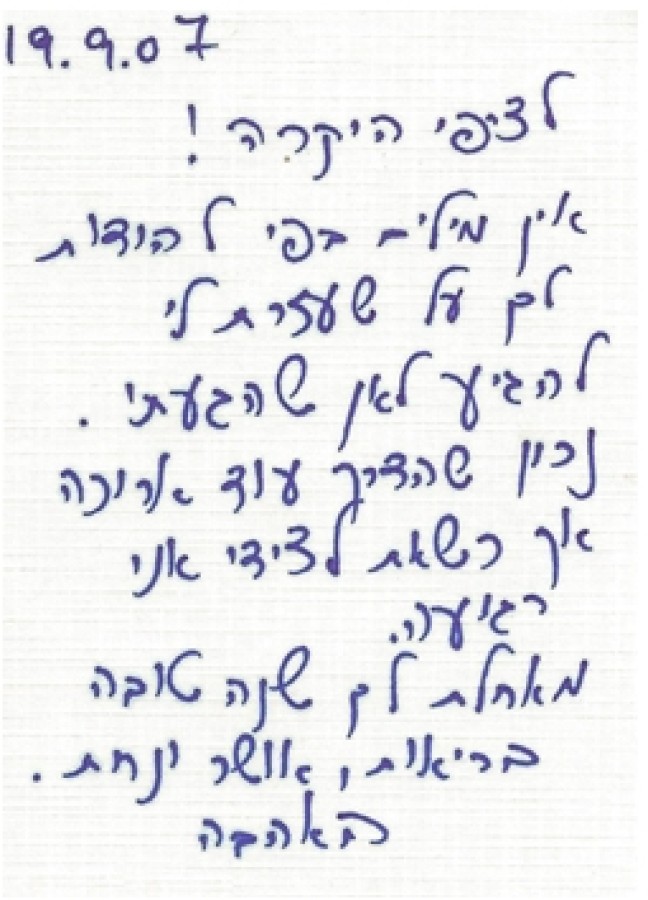 19.9.07
לציפי היקרה !
אין מילים בפי להודות
לך על שעזרת לי
להגיע לאן שהגעתי .
נכון שהדרך עוד ארוכה
אך כשאת לצידי אני
רגועה.
מאחלת לך שנה טובה
בריאות, אושר ונחת .
באהבה